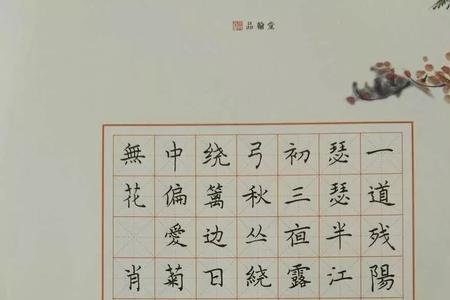 品翰堂
一道残陽
瑟瑟半江
初三亱露
弓秋丛繞
绕篱边日
中偏愛菊
無花肖